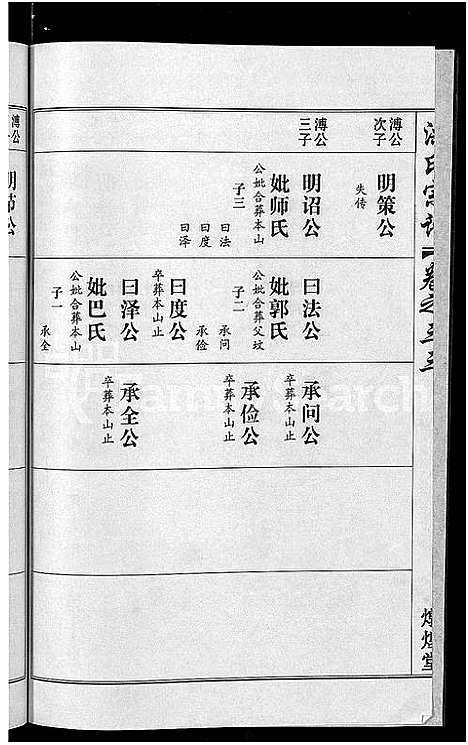 溥公
次子
明策公
失传
溥公
三子
明诏公
妣师氏
公妣合葬本山
子三
曰法
曰度
曰泽
曰法公
妣郭氏
公妣合葬父坟
子二
承问
承俭
曰度公
卒葬本山止
曰泽公
妣巴氏
公妣合葬本山
子一
承全
承问公
卒葬本山止
承俭公
卒葬本山止
承全公
卒葬本山止